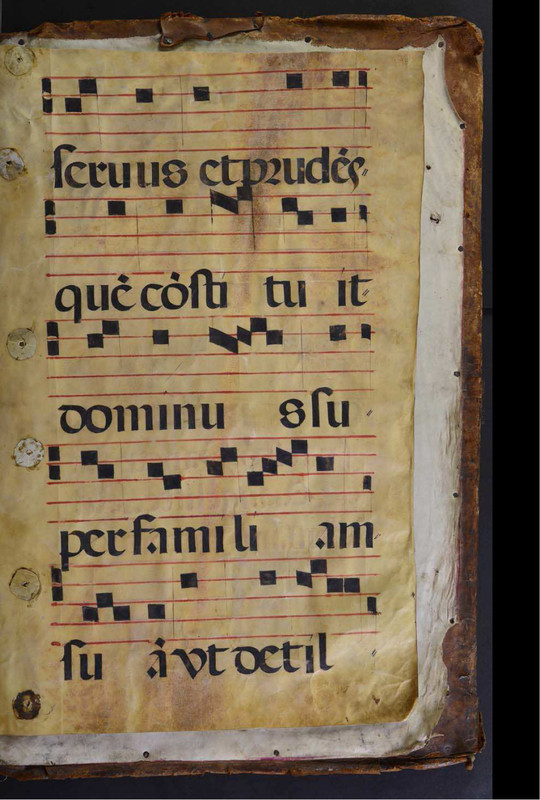 seruus et prudẽs
quẽ cõsti tu it
dominu s su
per famili am
su ã vt det il